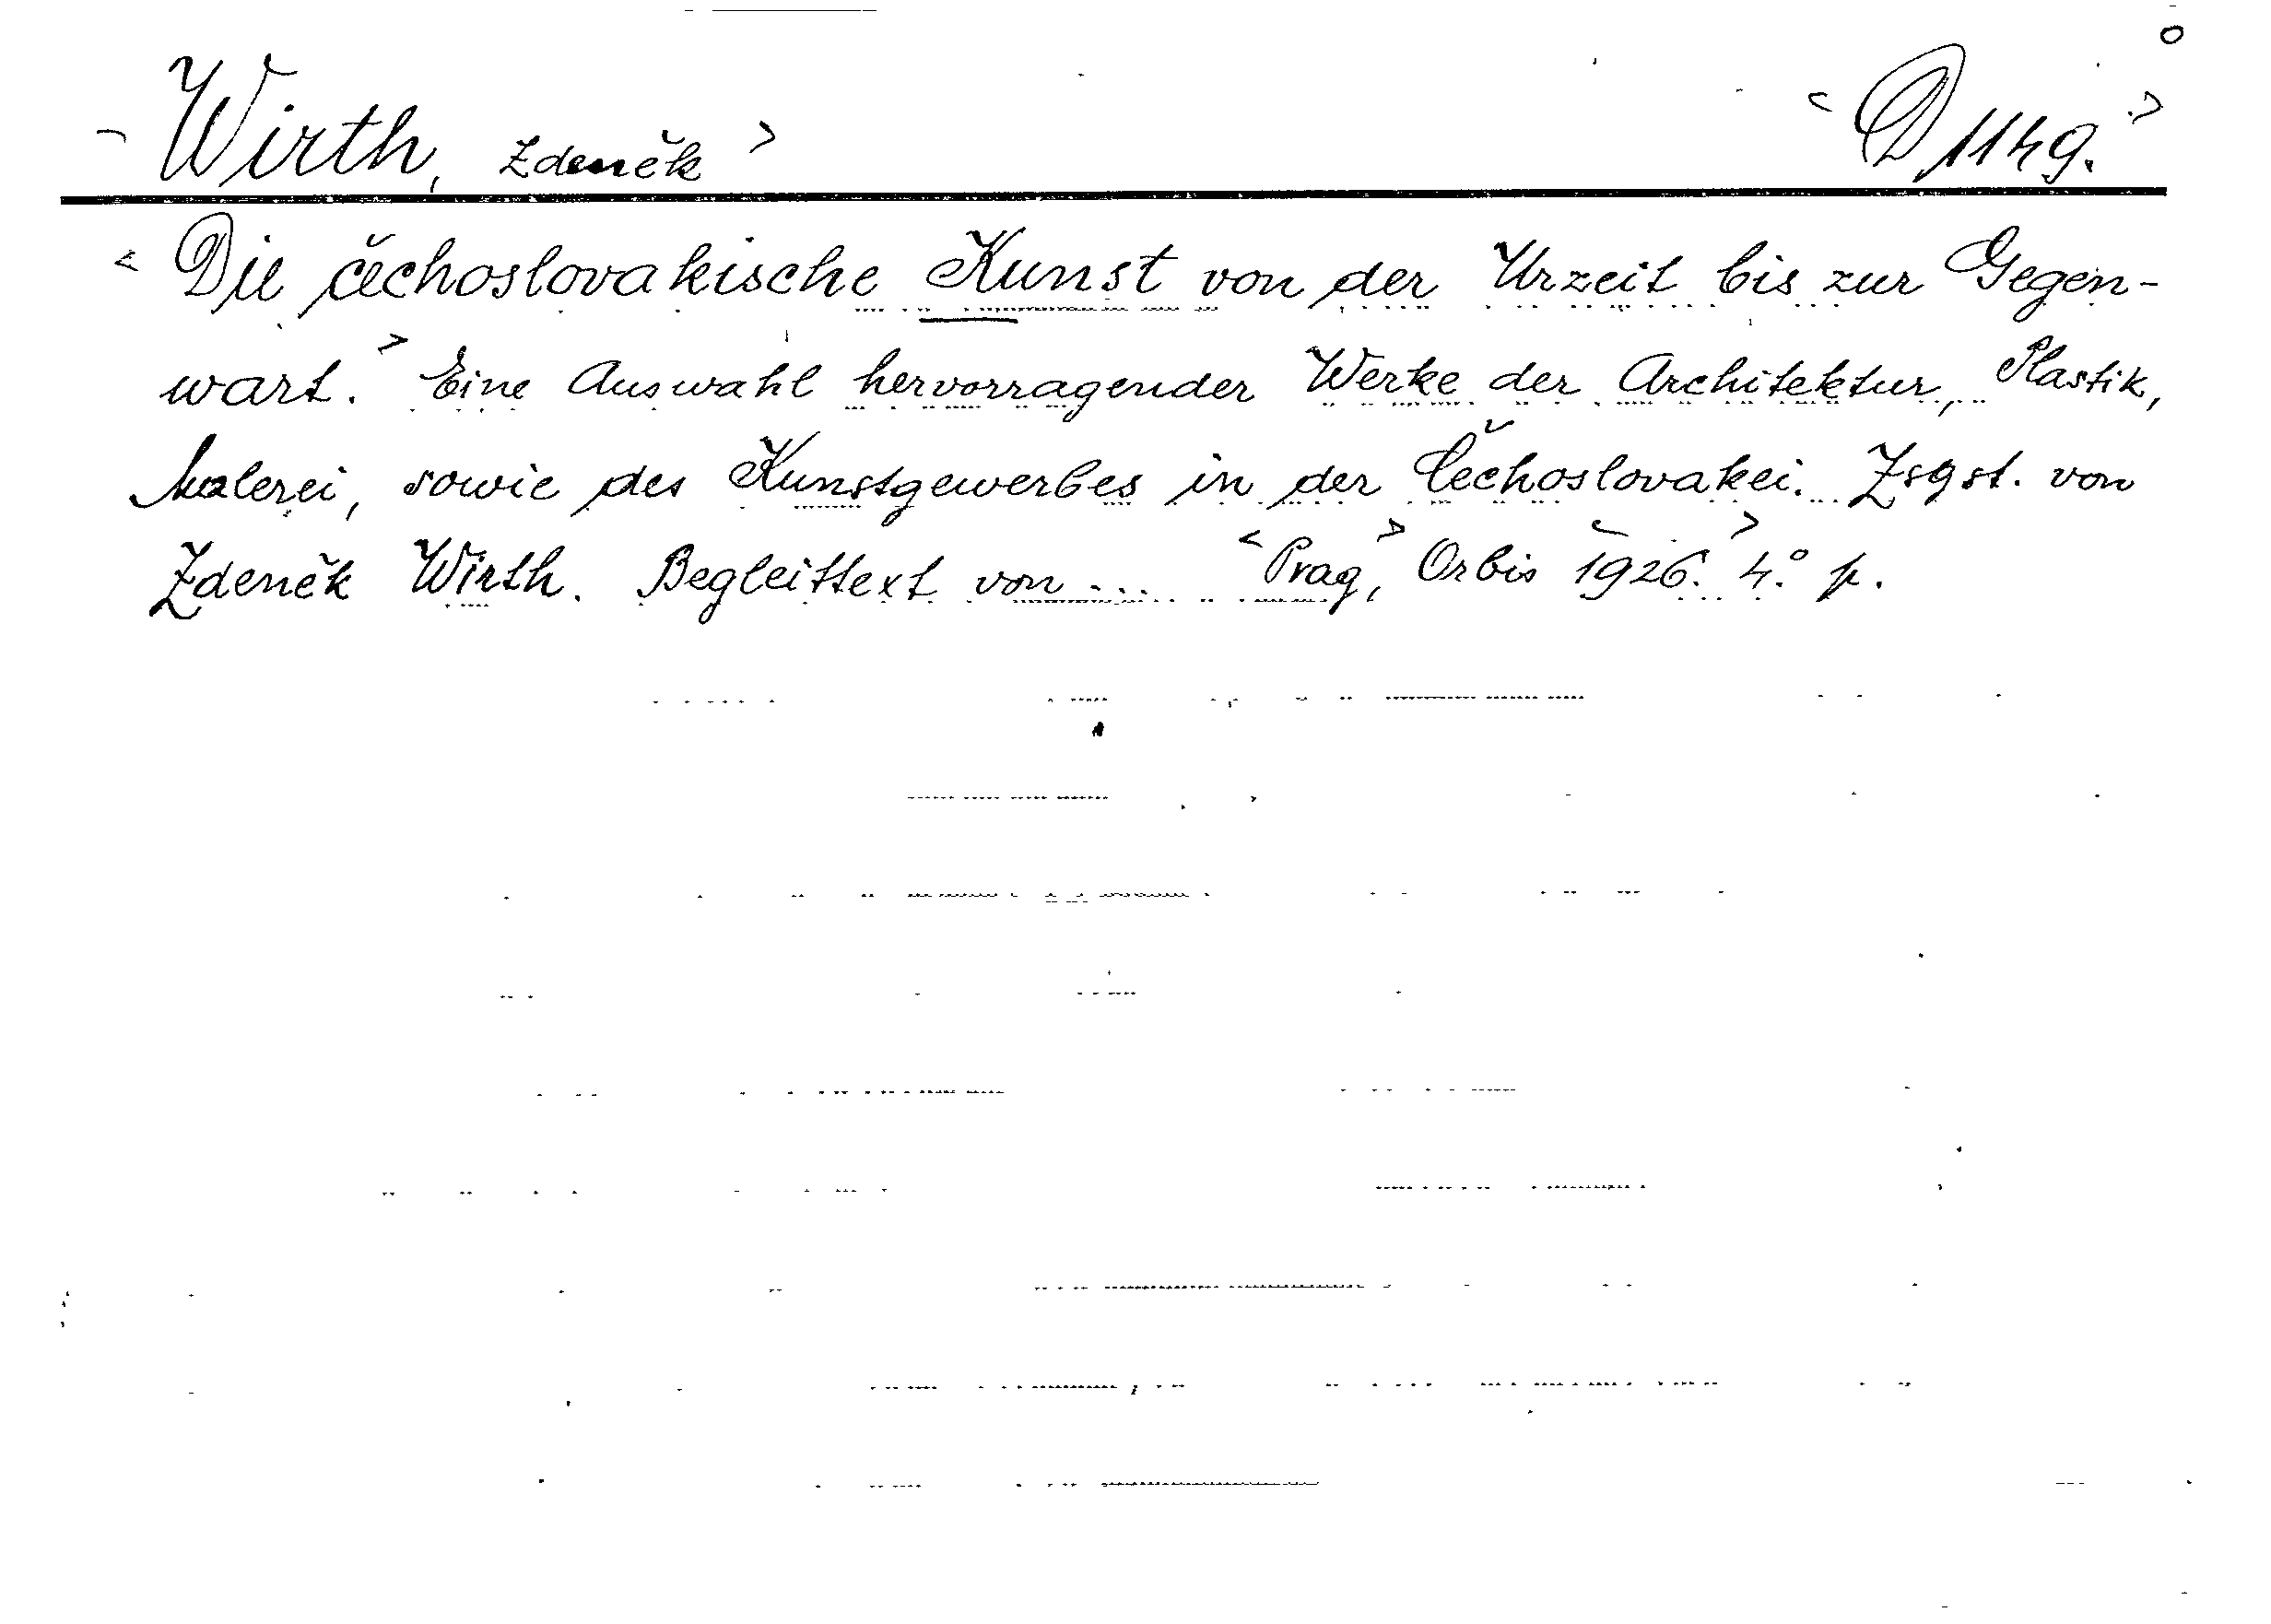 < Wirth, Zdeněk > < D 1149. >
< Die čechoslovakische Kunst von der Urzeit bis zur Gegen-
wart. > Eine Auswahl hervorragender Werke der Architektur, Plastik,
Malerei, sowie des Kunstgewerbes in der Čechoslovakei. Zsgst. von
Zdeněk Wirth. Begleittext von ... < Prag, > Orbis < 1926. > 4.° p.